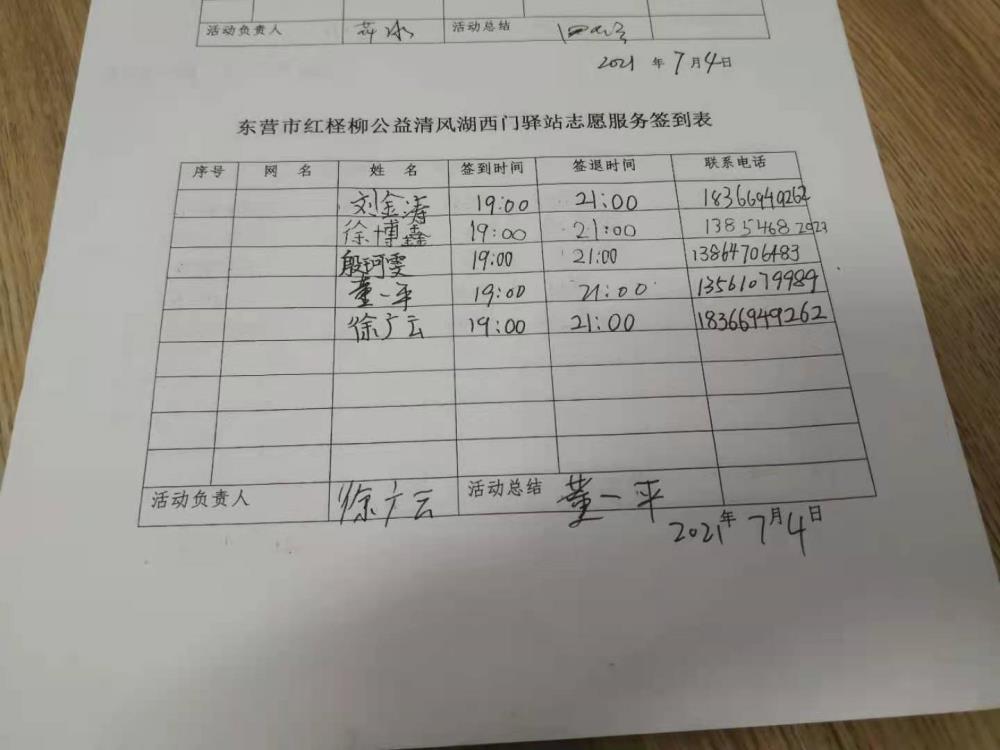 活动负责人 活动总结
2021 年 7月4日
东营市红柽柳公益清风湖西门驿站志愿服务签到表
序号 网 名 姓 名 签到时间 签退时间 联系电话
刘金涛 19:00 21:00 18366949262
徐博鑫 19:00 21:00 13854682923
殷珂雯 19:00 21:00 13864706483
董一平 19:00 21:00 13561079989
徐广云 19:00 21:00 18366949262
活动负责人 徐广云 活动总结 董一平
2021年 7月4日